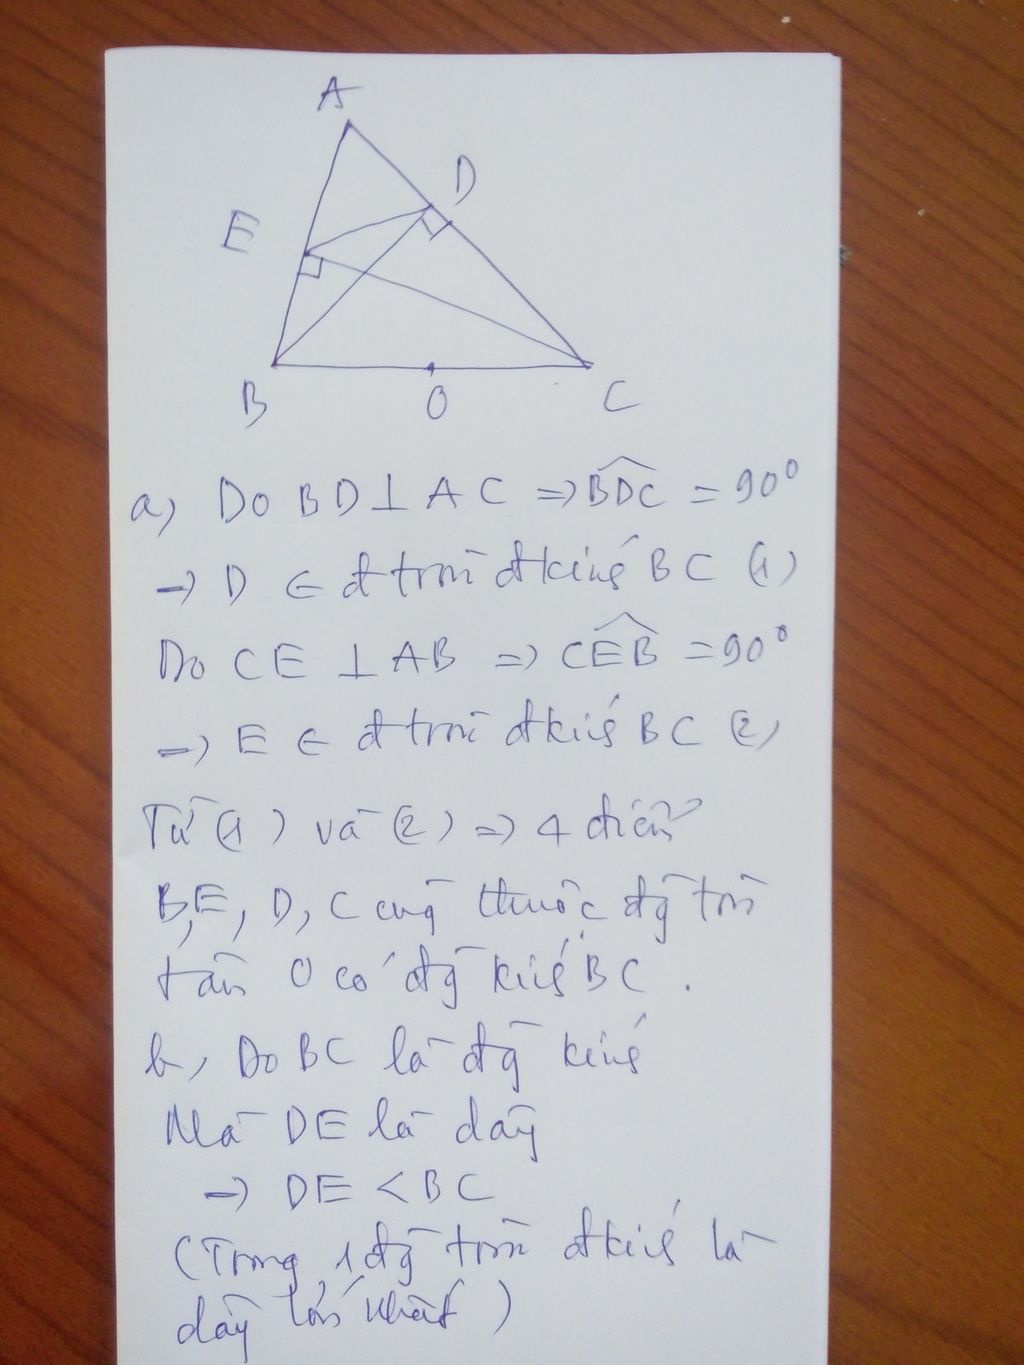 A
D
E
B
O
C
a, Do BD ⊥ AC => \widehat{BDC} = 90⁰
→ D ∈ đ tròn đkính BC (1)
Do CE ⊥ AB => \widehat{CEB} = 90⁰
→ E ∈ đ tròn đkính BC (2)
Từ (1) và (2) => 4 điểm
B, E, D, C cùng thuộc đg tròn
tâm O có đg kính BC.
b, Do BC là đg kính
Mà DE là dây
→ DE < BC
(Trong 1 đg tròn đkính là
dây lớn nhất)